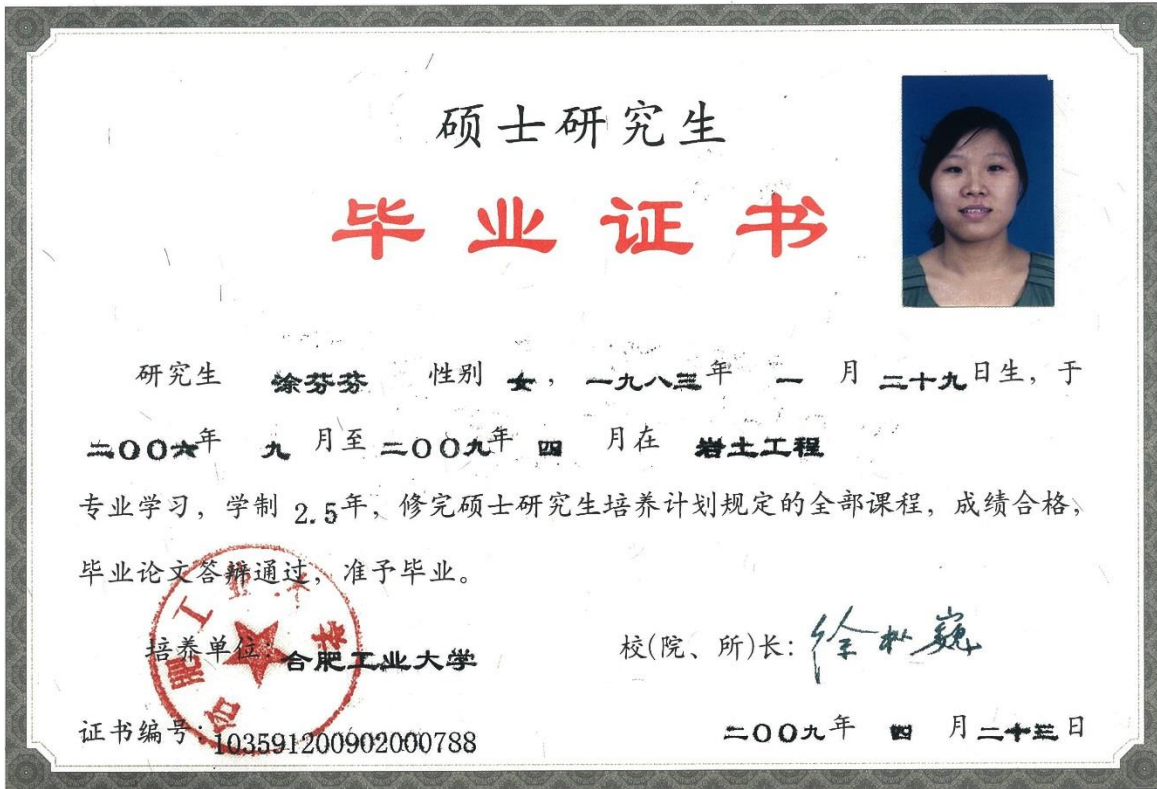 硕士研究生
毕业证书
研究生 涂芬芬 性别 女，一九八三年 一 月 二十九日生，于
二〇〇六年 九 月至 二〇〇九年 四 月在 岩土工程
专业学习，学制 2.5年，修完硕士研究生培养计划规定的全部课程，成绩合格，
毕业论文答辩通过，准予毕业。
合肥工业大学
培养单位：合肥工业大学 校(院、所)长：徐枞巍
证书编号：103591200902000788 二〇〇九年 四 月二十三日